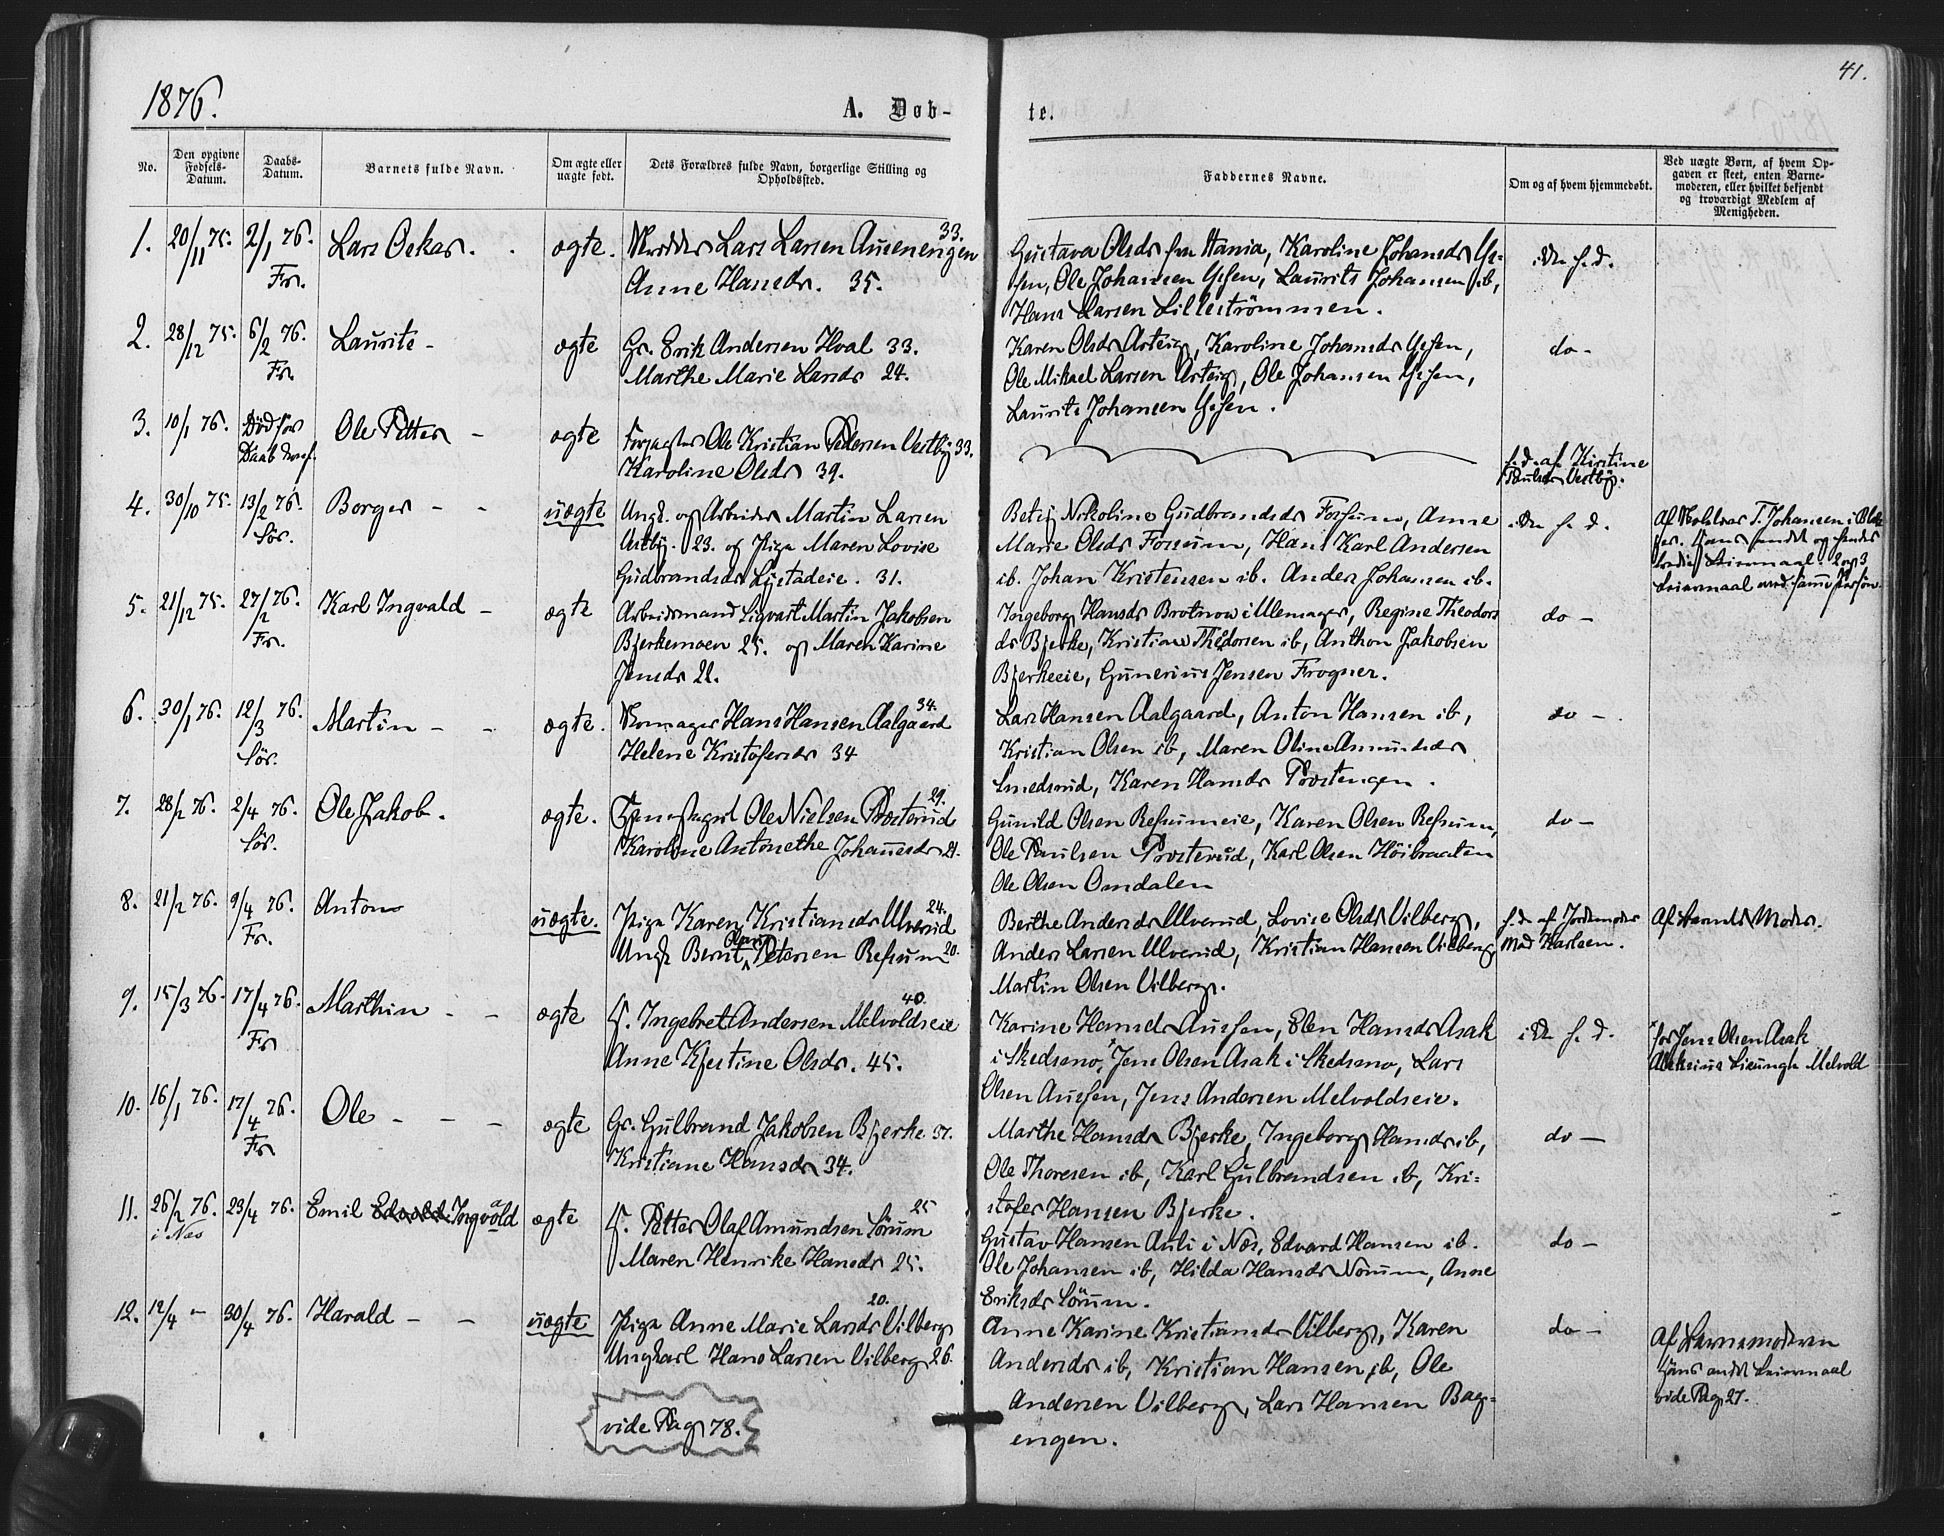 1876.
A. Døb-
te.
41.
No.
Den opgivne Fødsels-Datum.
Daabs-Datum.
Barnets fulde Navn.
Om ægte eller uægte født.
Dets Forældres fulde Navn, borgerlige Stilling og Opholdssted.
Faddernes Navne.
Om og af hvem hjemmedøbt.
Ved uægte Børn, af hvem Op-
gaven er skeet, enten Barne-
moderen, eller hvilket bekjendt
og troværdigt Medlem af
Menigheden.
1. 20/11 75. 2/1 76. Fr. Lars Oskar. ægte. Lars Larsen 33.
Anne Hansdr. 35.
Gustava Olsdr fra Stania, Karoline Johansdr
Ole Johansen, Laurits Johansen ib,
Hans Larsen Lillestrømmen.
f. d.
2. 28/12 75. 6/2 76. Fr. Laurits - ægte Gr. Erik Andersen Hval 33.
Marthe Marie Larsdr 24.
Karen Olsdr Asteig, Karoline Johansdr
Ole Mikael Larsen Asteig, Ole Johansen
Laurits Johansen
do -
3. 10/1 76. Død før Daab Ole Petter - ægte Forpagter Ole Kristian Pedersen Vestby 33.
Karoline Olsdr 39.
f. d. af Kirstine
Paulsdr Vestby.
4. 30/10 75. 13/2 76. Sør. Borger - - uægte Ungk. og Arbeider Martin Larsen
Astby. 23. og Pige Maren Lovise
Gudbrandsdr 31.
Betzy Nikoline Gudbrandsdr Fossum, Anne
Marie Olsdr Fossum, Hans Karl Andersen
ib. Johan Kristensen ib. Anders Johansen ib.
f. d.
Af T. Johansen i
Hans andet og hendes
tredie Leiermaal. 2 og 3
Leiermaal med samme Person.
5. 21/12 75. 27/2 76. Fr. Karl Ingvald - ægte Arbeidsmand Sigvart Martin Jakobsen
Bjerkemoen 25. og Maren Karine
Jensdr 22.
Ingeborg Hansdr i Ullensager, Regine Theodors
dr Bjerke, Kristian Thedorsen ib, Anthon Jakobsen
Bjerkeeie, Gunerius Jensen Frogner.
do -
6. 30/1 76. 12/3 76. Sør. Martin - - ægte. Skomager Hans Hansen Aalgaard 34.
Helene Kristofersdr 34
Lars Hansen Aalgaard, Anton Hansen ib,
Kristian Olsen ib, Maren Oline Amundsdr
Smedsrud, Karen Hansdr Prestengen.
do -.
7. 28/2 76. 2/4 76. Sør. Ole Jakob. ægte. Ole Nielsen Præsterud 29.
Karoline Antonethe Johannesdr 21.
Gunild Olsen Refsumeie, Karen Olsen Refsum,
Ole Paulsen Prosterud, Karl Olsen Høibraaten
Ole Olsen Omdalen
do -
8. 21/2 76. 9/4 76. Fr. Anton uægte. Pige Karen Kristiansdr Ulverud 24.
Ungk Bernt Petersen Refsum 20.
Berthe Andersdr Ulverud, Lovise Olsdr Vilberg,
Anders Larsen Ulverud, Kristian Hansen Vilberg,
Martin Olsen Vilberg.
f. d. af Jordemoder
Mad Karlsen.
Af Barnets Moder.
9. 15/3 76. 17/4 76. Fr Marthin - - ægte F. Ingebret Andersen Melvoldseie 40.
Anne Kjestine Olsdr. 45.
Karine Hansdr Aussen, Elen Hansdr Asak
i Skedsmo, *Jens Olsen Asak i Skedsmo, Lars
Olsen Aussen, Jens Andersen Melvoldseie.
f. d.
*for Jens Olsen Asak
Lieungh Melvold
10. 16/1 76. 17/4 76. Fr Ole - - - ægte Gr. Gulbrand Jakobsen Bjerke 37.
Kristiane Hansdr 34.
Marthe Hansdr Bjerke, Ingeborg Hansdr ib,
Ole Thoresen ib, Karl Gulbrandsen ib, Kri-
stofer Hansen Bjerke.
do -
11. 26/2 76. i Næs 23/4 76. Emil Ingvald ægte F. Petter Olaf Amundsen Sørum 25
Maren Henrike Hansdr 25.
Gustav Hansen Auli i Næs, Edvard Hansen ib.
Ole Johansen ib, Hilda Hansdr Norum, Anne
Eriksdr Sørum.
do -
12. 12/4 - 30/4 76. Harald - - uægte Pige Anne Marie Larsdr Vilberg 20.
Ungkarl Hans Larsen Vilberg 26.
Anne Karine Kristiansdr Vilberg, Karen
Andersdr ib, Kristian Hansen ib, Ole
Andersen Vilberg, Lars Hansen Bag-
engen.
do -
Af Barnemoderen
Hans andet Leiermaal
vide Pag 27.
vide Pag 78.